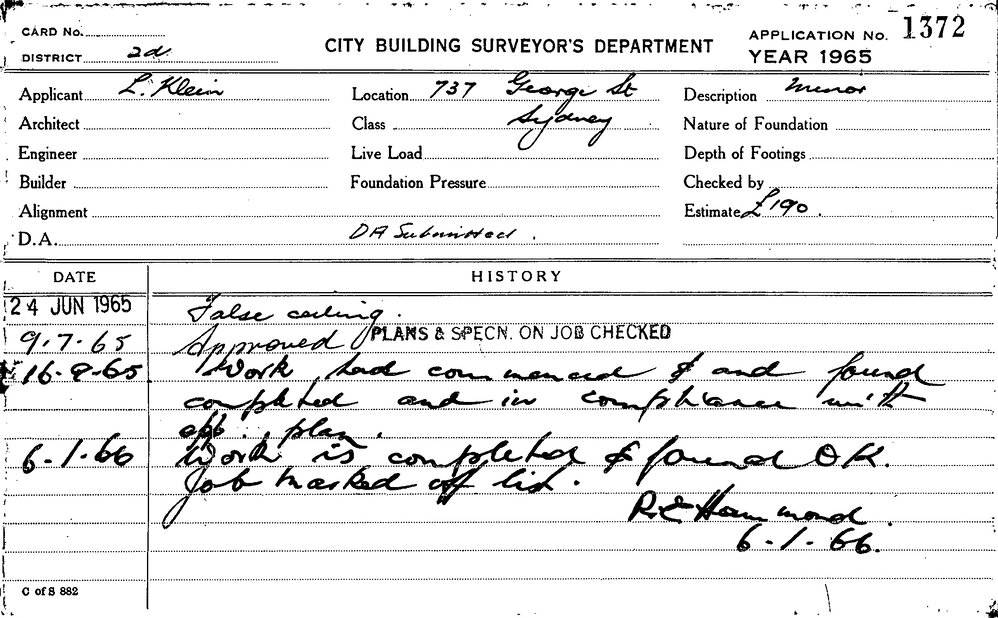 CARD No.
DISTRICT 2d
CITY BUILDING SURVEYOR'S DEPARTMENT
APPLICATION No. 1372
YEAR 1965
Applicant L. Klein
Location 737 George St
Description Minor
Architect
Class Sydney
Nature of Foundation
Engineer
Live Load
Depth of Footings
Builder
Foundation Pressure
Checked by
Alignment
Estimate £190.
D.A. DA Submitted.
DATE
HISTORY
24 JUN 1965 False ceiling.
9.7.65 Approved PLANS & SPECN. ON JOB CHECKED
16-9-65 Work had commenced & and found
completed and in compliance with
app. plan.
6-1-66 Work is completed & found OK.
Job marked off list.
R.E Hammond.
6-1-66.
C of S 882